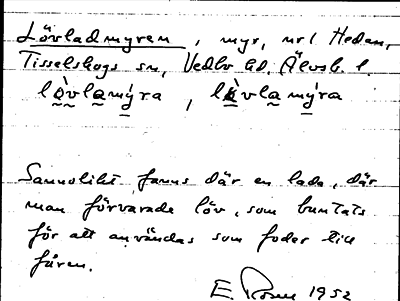 Lövladmyren, myr, url Hedan,
Tisselskogs sn, Vedbo hd. Älvsb. l.
lò̰vla̰mýra, lö̀vla̰mýra
Sannolikt fanns där en lada, där
man förvarade löv, som buntats
för att användas som foder till
fåren.
E. 1952